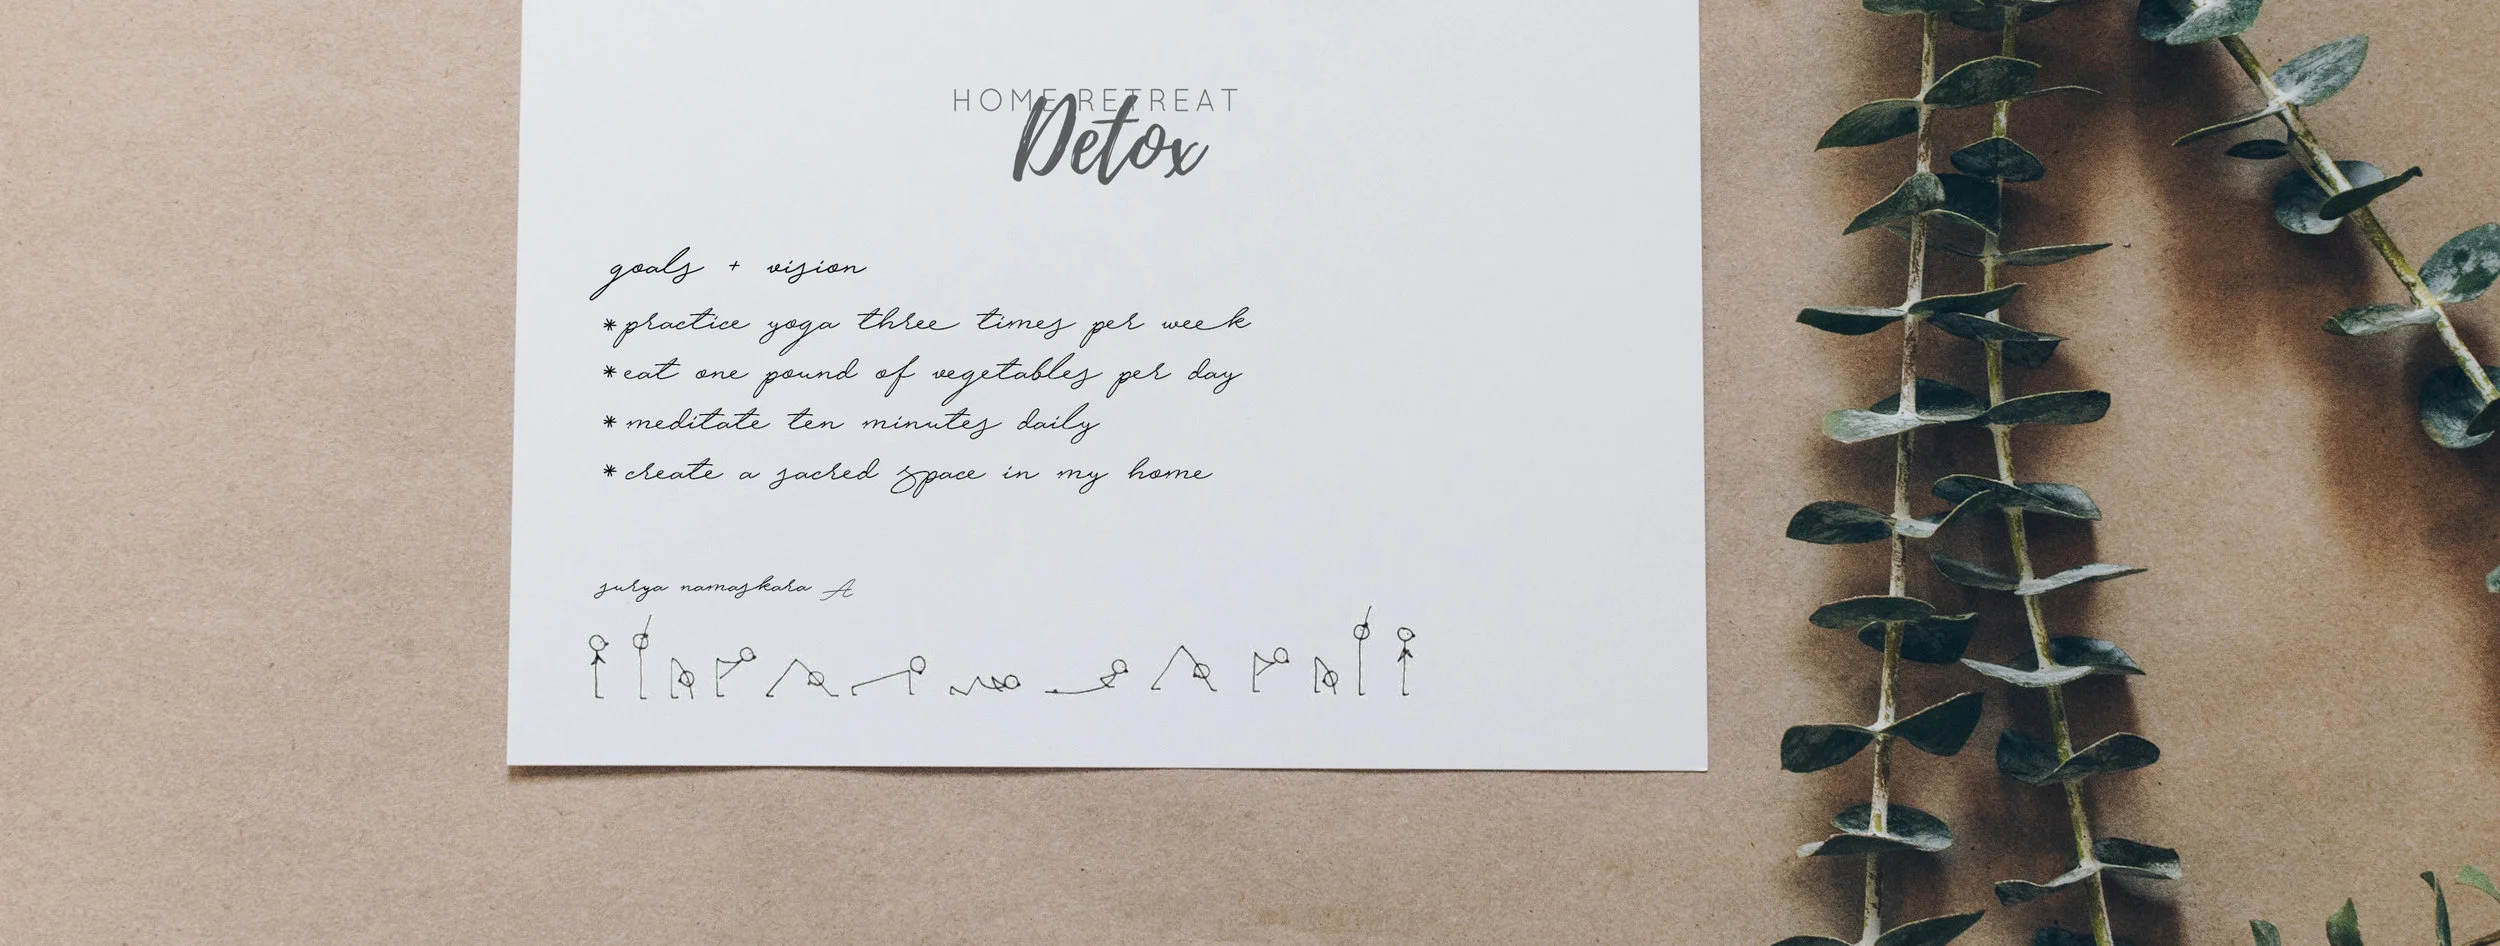 HOME RETREAT
Detox
goals + vision
*practice yoga three times per week
*eat one pound of vegetables per day
*meditate ten minutes daily
*create a sacred space in my home
surya namaskara A